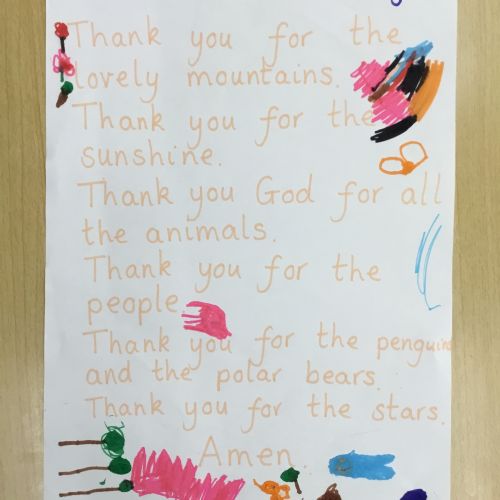 Thank you for the
lovely mountains.
Thank you for the
sunshine.
Thank you God for all
the animals.
Thank you for the
people.
Thank you for the penguins
and the polar bears.
Thank you for the stars.
Amen